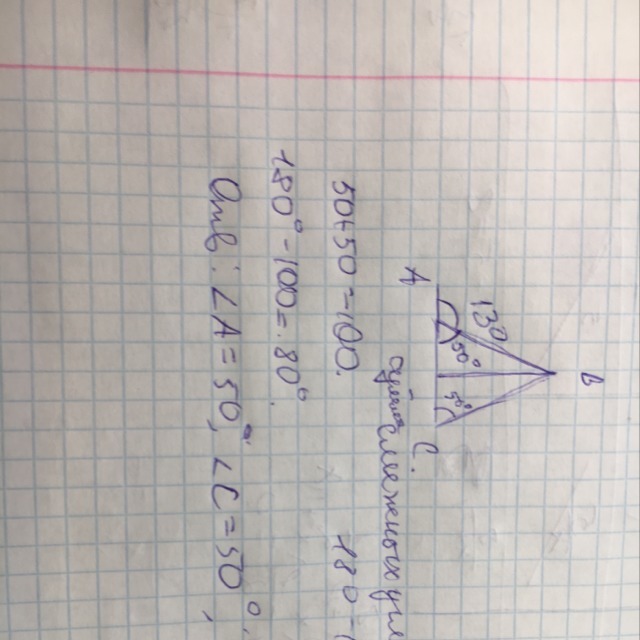 B
130
50° 5°
A C.
сумма смежного угла
180 -
50+50 = 100.
180° - 100 = 80°.
Отв: ∠A = 50°, ∠C = 50°,